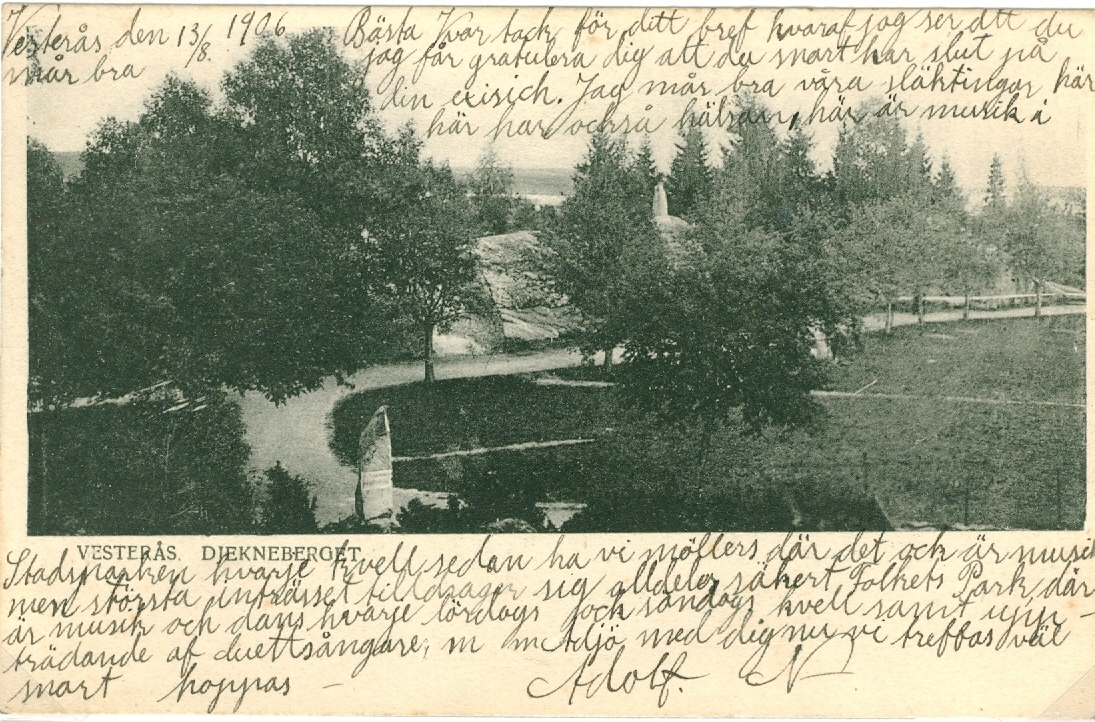 Vesterås den 13/8. 1906
Bästa Ivar tack för ditt bref hvaraf jag ser att du
mår bra
jag får gratulera dig att du snart har slut på
din exisich. Jag mår bra våra släktingar här
här har också hälsan, här är musik i
VESTERÅS. DJEKNEBERGET.
Stadsparken hvarje kvell sedan ha vi möllers där det och är musik
men största inträsset tilldrager sig alldeles säkert Folkets Park där
är musik och dans hvarje lördags och söndags kvell samt upp-
trädande af duettsångare, m m Adjö med dig nu vi treffas väl
snart hoppas –
Adolf. N